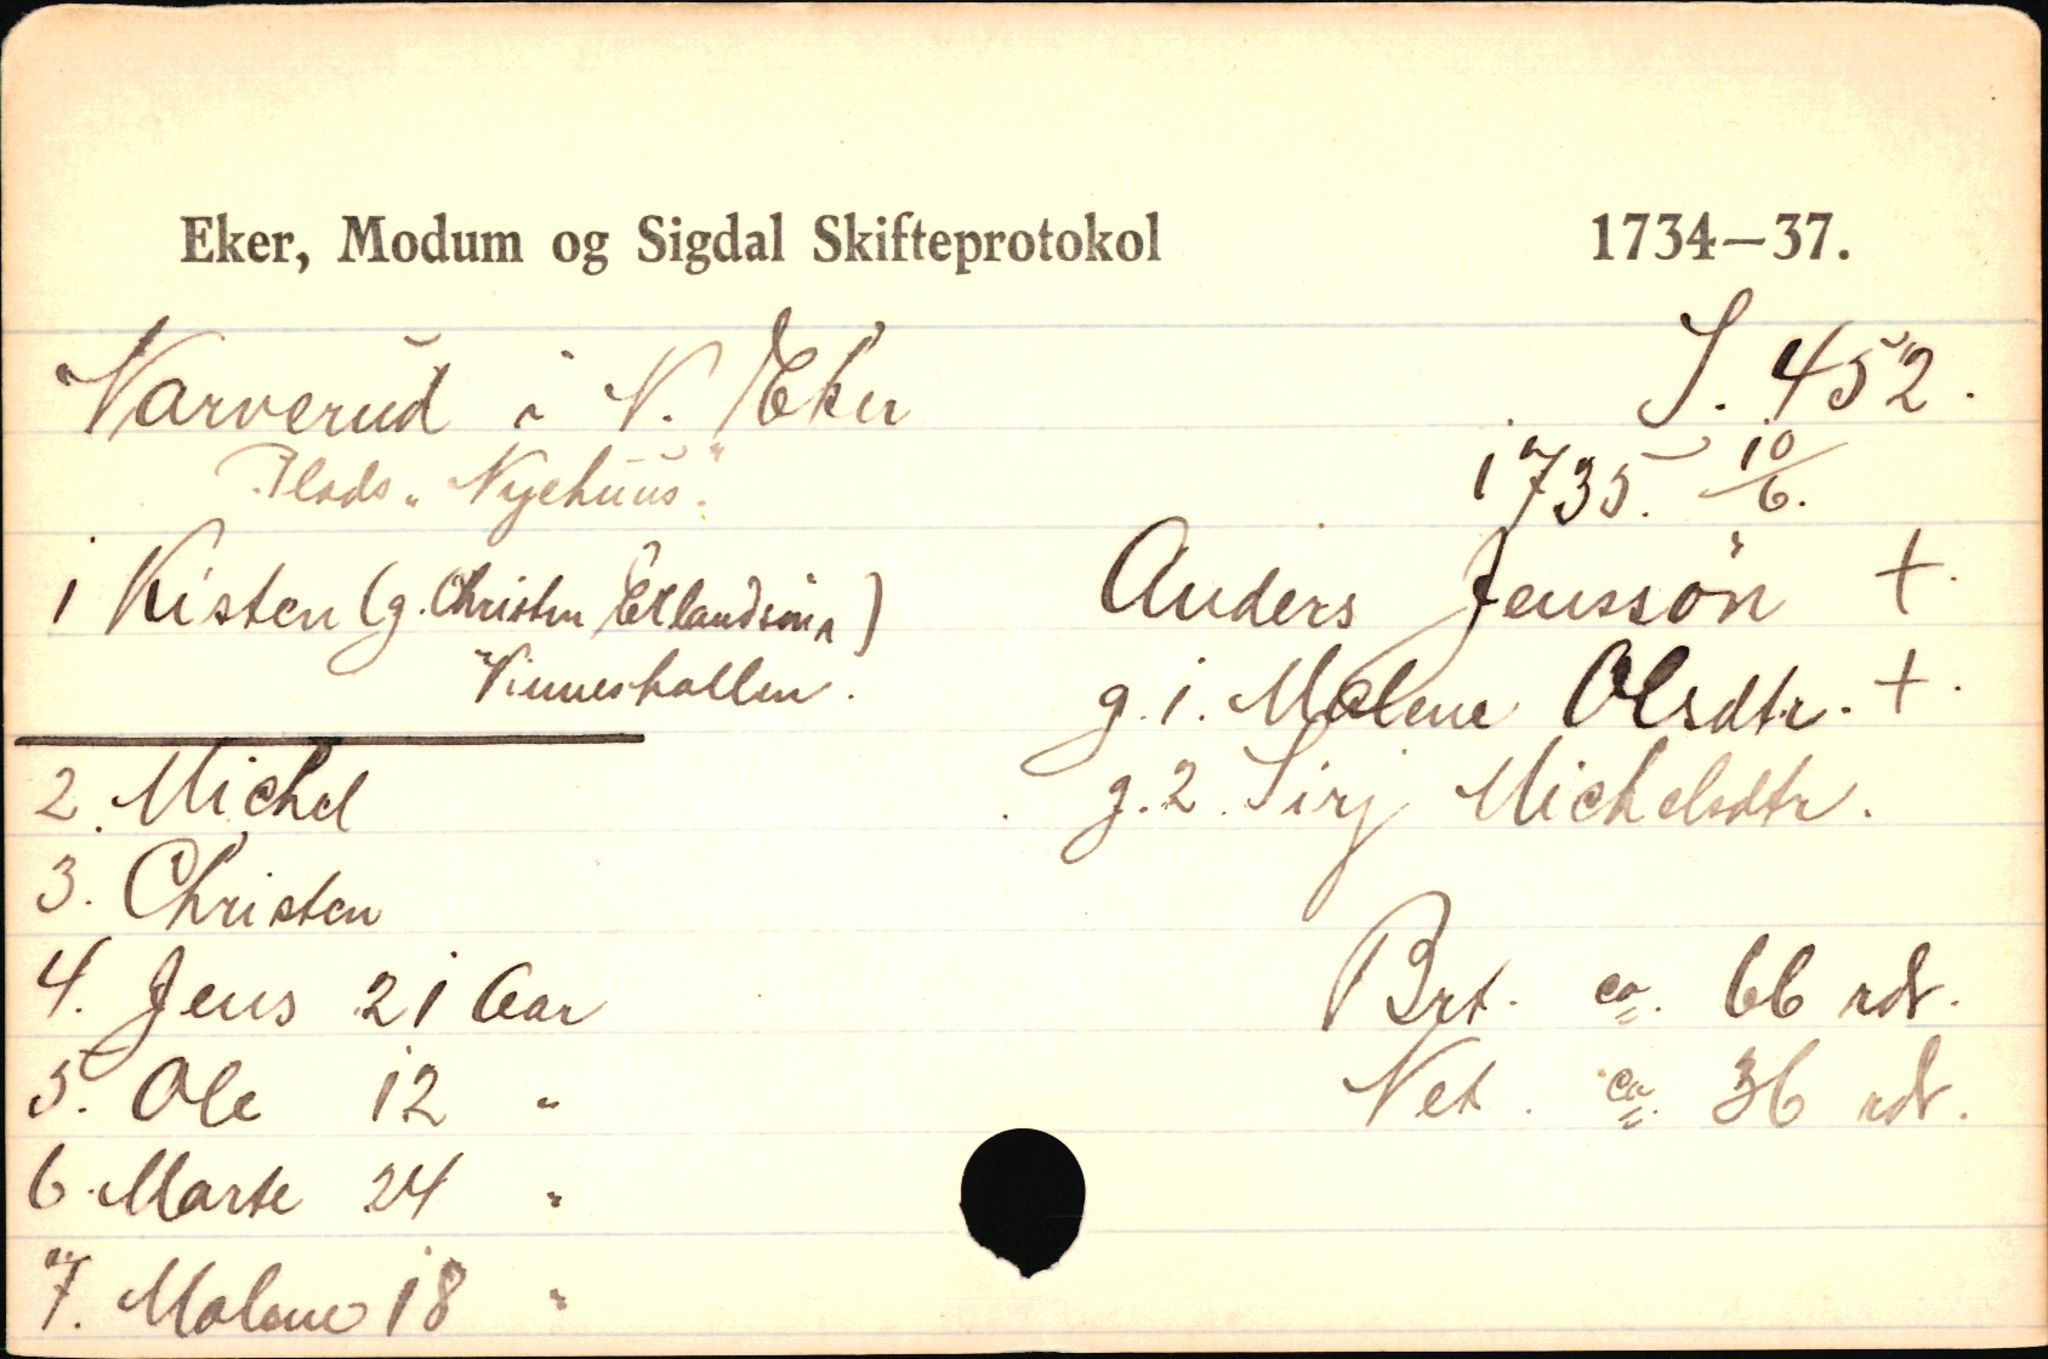 Eker, Modum og Sigdal Skifteprotokol 1734—37.
Narverud i N. Eker S. 452.
Plads „Nyehuus" 1735. 10/6.
1 Kisten (g. Christen Erlandsøn
Vinneshallen.)
Anders Jenssøn +
g. 1. Malene Olsdtr. +
g. 2. Sirj Michelsdtr.
2. Michel
3. Christen
4. Jens 21 Aar
5. Ole 12 "
6. Marte 24 "
7. Malene 18 "
Brt. ca. 66 rdr.
Net. ca. 36 rdr.